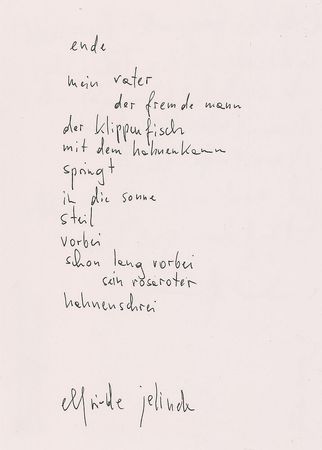 ende
mein vater
der fremde mann
der klippenfisch
mit dem hahnenkamm
springt
in die sonne
steil
vorbei
schon lang vorbei
sein rosaroter
hahnenschrei
elfriede jelinek